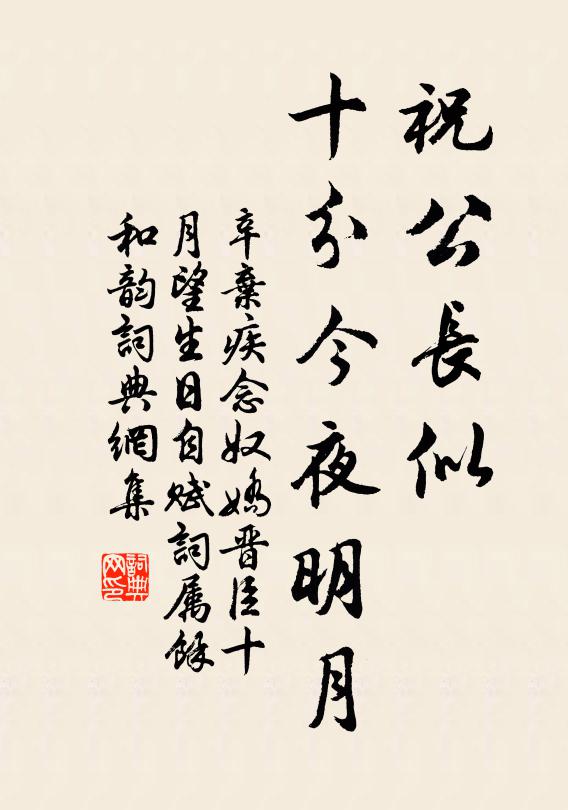 祝公長似
十分今夜明月
辛棄疾念奴嬌晋臣十
月望生日自賦詞属餘
和韵詞典網集
詞典网印